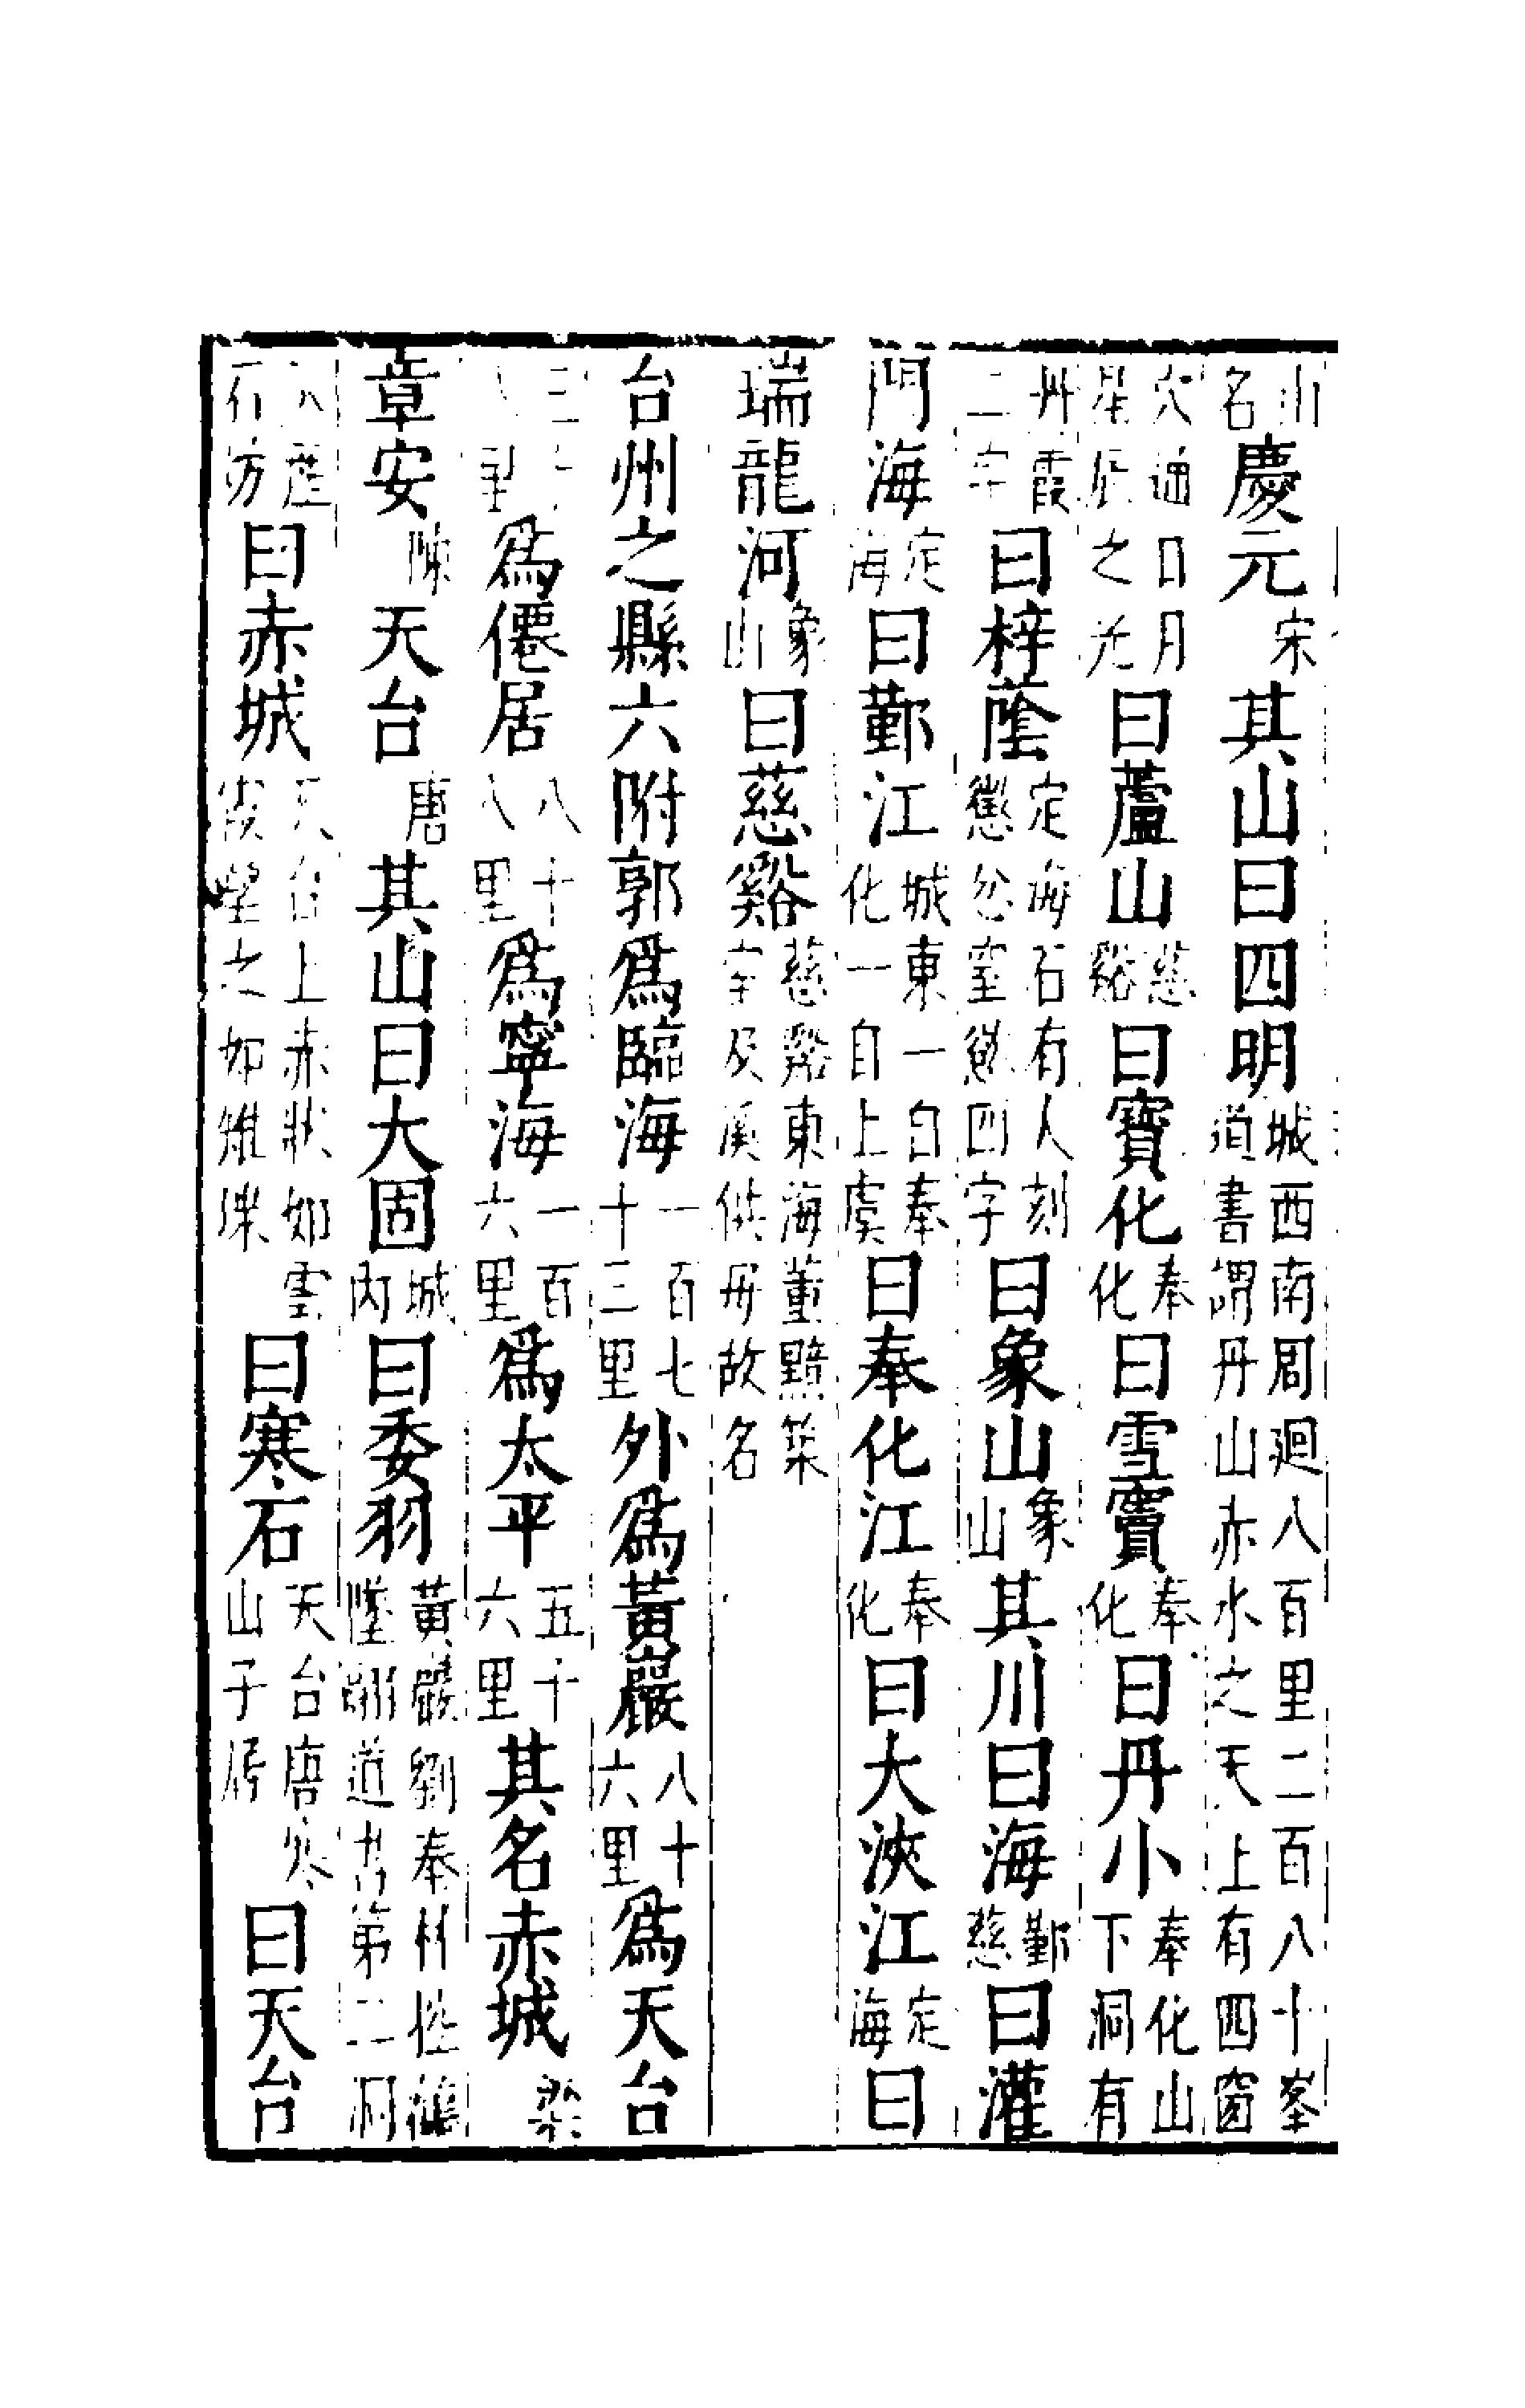 山名慶元宋其山曰四明城西南周廻八百里二百八十峯道書謂丹山赤水之天上有四窗
穴通日月星辰之光曰蘆山慈谿曰寶化奉化曰雪竇奉化曰丹小奉化山下洞有
丹霞二字曰梓蔭定海石有人刻懲忿窒慾四字曰象山象山其川曰海鄞慈曰灌
門海定海曰鄞江城東一自奉化一自上虞曰奉化江奉化曰大浹江定海曰
瑞龍河象山曰慈谿慈谿東海董黯築室汲溪供母故名
台州之縣六附郭爲臨海一百七十三里外爲黃巖八十六里爲天台
爲僊居八十八里爲寧海一百六里爲太平五十六里其名赤城梁
章安陳天台唐其山曰大固城內曰委羽黃巖劉奉林控鶴墮翮道書第二洞
曰赤城天台上赤狀如雲霞望之如雉堞曰寒石天台唐寒山子居曰天台